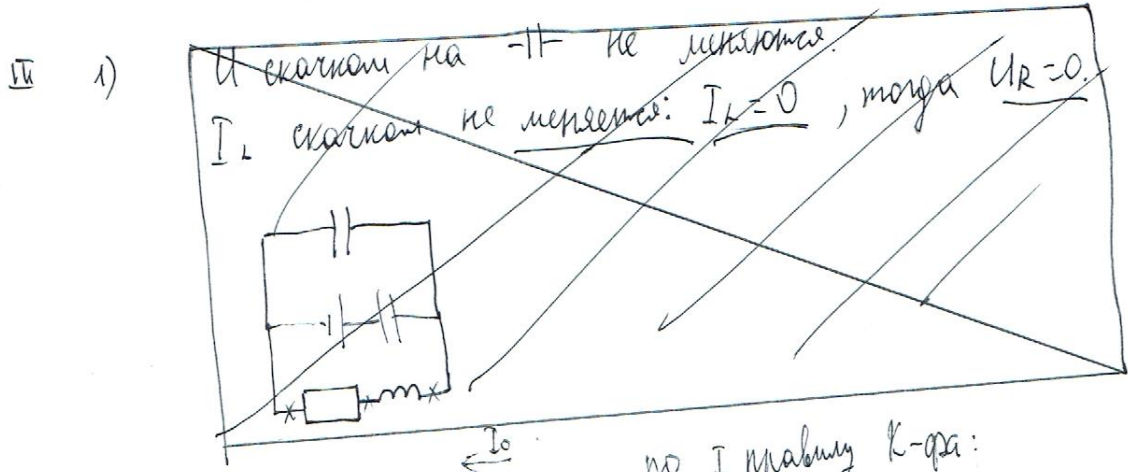 III 1)
U скачком на -||- не меняются.
I_L скачком не меняется: I_L = 0, тогда U_R = 0.
I_0
по I правилу К-фа: